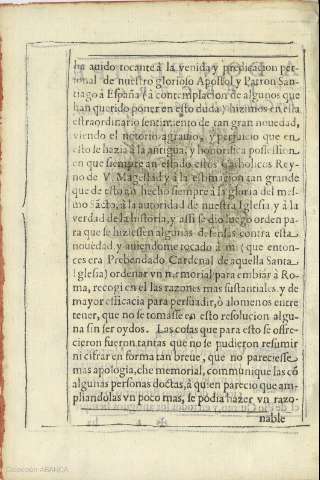 ha auido tocante à la venida y predicacion per-
sonal de nuestro glorioso Apostol y Patron San-
tiago à España (à contemplacion de algunos que
han querido poner en esto duda) hizimos en ella
estraordinario sentimiento de tan gran nouedad,
viendo el notorio agrauio, y perjuicio que en
esto se hazia à la antigua, y honorifica possession
en que siempre an estado estos Catholicos Rey-
nos de V. Magestad, y à la estimacion tan grande
que de esto an hecho siempre à la gloria del mes-
mo Sãcto, à la autoridad de nuestra Iglesia y à la
verdad de la historia, y assi se dio luego orden pa-
ra que se hiziessen algunas defensas contra esta
nouedad y auiendome tocado à mi (que enton-
ces era Prebendado Cardenal de aquella Santa
Iglesia) ordenar vn memorial para embiar à Ro-
ma, recogi en el las razones mas sustantiales y de
mayor efficacia para persuadir, ò alomenos entre
tener, que no se tomasse en esto resolucion algu-
na sin ser oydos. Las cosas que para esto se offre-
cieron fueron tantas que no se pudieron resumir
ni cifrar en forma tan breue, que no pareciesse
mas apologia, che memorial, communique las cõ
algunas personas doctas, à quien parecio que am-
pliandolas vn poco mas, se podia hazer vn razo-
nable
Colección ABANCA